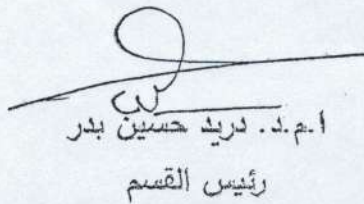 ا.م.د. دريد حسين بدر
رئيس القسم